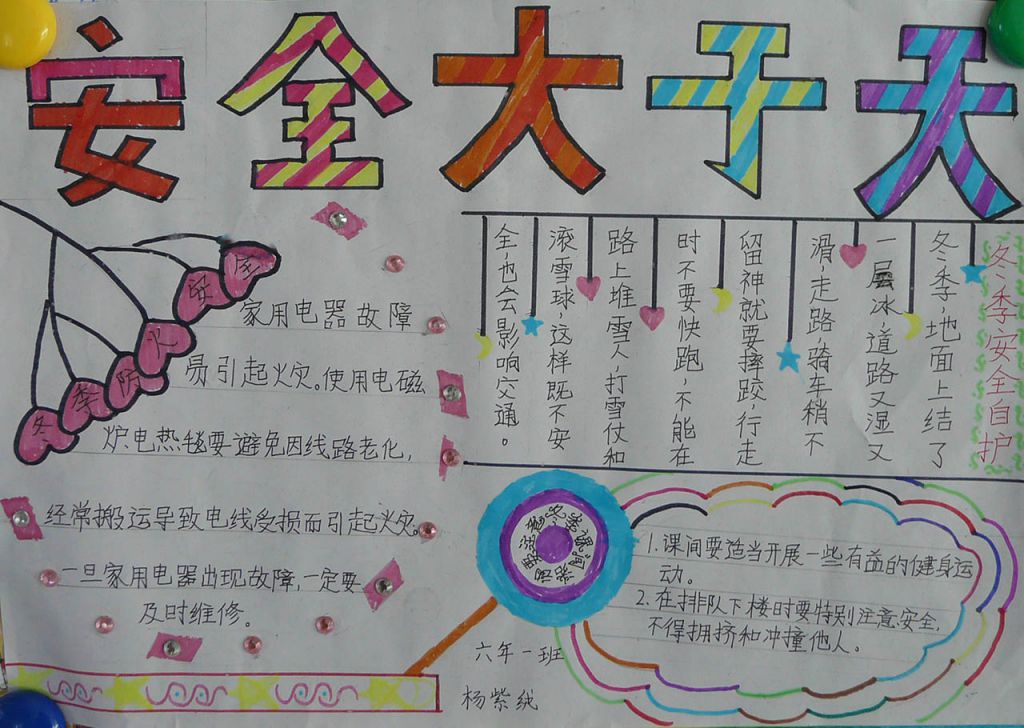 安全大于天
冬季防火安全
家用电器故障
易引起火灾。使用电磁
炉、电热毯要避免因线路老化,
经常搬运导致电线受损而引起火灾。
一旦家用电器出现故障,一定要
及时维修。
冬季安全自护
冬季,地面上结了
一层冰,道路又湿又
滑,走路,骑车稍不
留神就要摔跤,行走
时不要快跑,不能在
路上堆雪人,打雪仗和
滚雪球,这样既不安
全,也会影响交通。
冬季课间
1.课间要适当开展一些有益的健身运
动。
2.在排队下楼时要特别注意安全,
不得拥挤和冲撞他人。
六年一班
杨紫绒